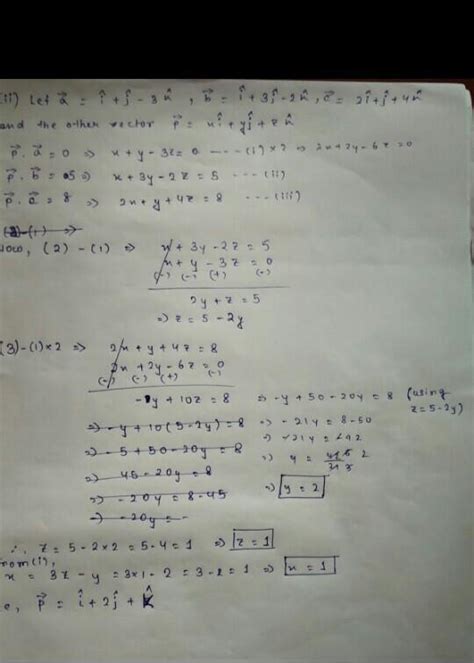 (ii) Let a⃗ = î + ĵ - 3k̂ , b⃗ = î + 3ĵ - 2k̂ , c⃗ = 2î + ĵ + 4k̂
and the other vector p⃗ = xî + yĵ + zk̂
p⃗ . a⃗ = 0 => x + y - 3z = 0 ---- (i) × 2 => 2x + 2y - 6z = 0
p⃗ . b⃗ = 5 => x + 3y - 2z = 5 --- (ii)
p⃗ . c⃗ = 8 => 2x + y + 4z = 8 --- (iii)
Now, (2) - (1) => x + 3y - 2z = 5
x + y - 3z = 0
(-) (-) (+) (-)
2y + z = 5
=> z = 5 - 2y
(3) - (1) × 2 => 2x + y + 4z = 8
2x + 2y - 6z = 0
(-) (-) (+) (-)
-y + 10z = 8 => -y + 50 - 20y = 8 (using z = 5 - 2y)
=> -y + 10(5 - 2y) = 8 => -21y = 8 - 50
=> -5 + 50 - 20y = 8 => -21y = -42
=> 45 - 20y = 8 => y = 2
=> -20y = 8 - 45 => y = 2
=> -20y = -
∴ z = 5 - 2 × 2 = 5 - 4 = 1 => z = 1
from (i),
x = 3z - y = 3 × 1 - 2 = 3 - 2 = 1 => x = 1
p⃗ = î + 2ĵ + k̂